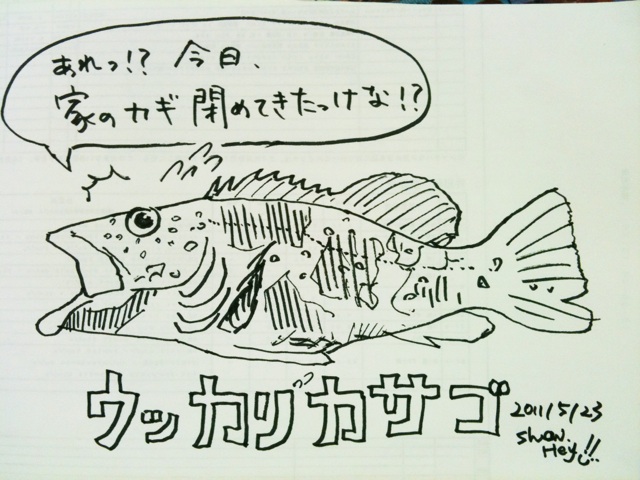 あれっ!? 今日、
家のカギ 閉めてきたっけな!?
ウッカリカサゴ
2011/5/23
shun.
Hey!!